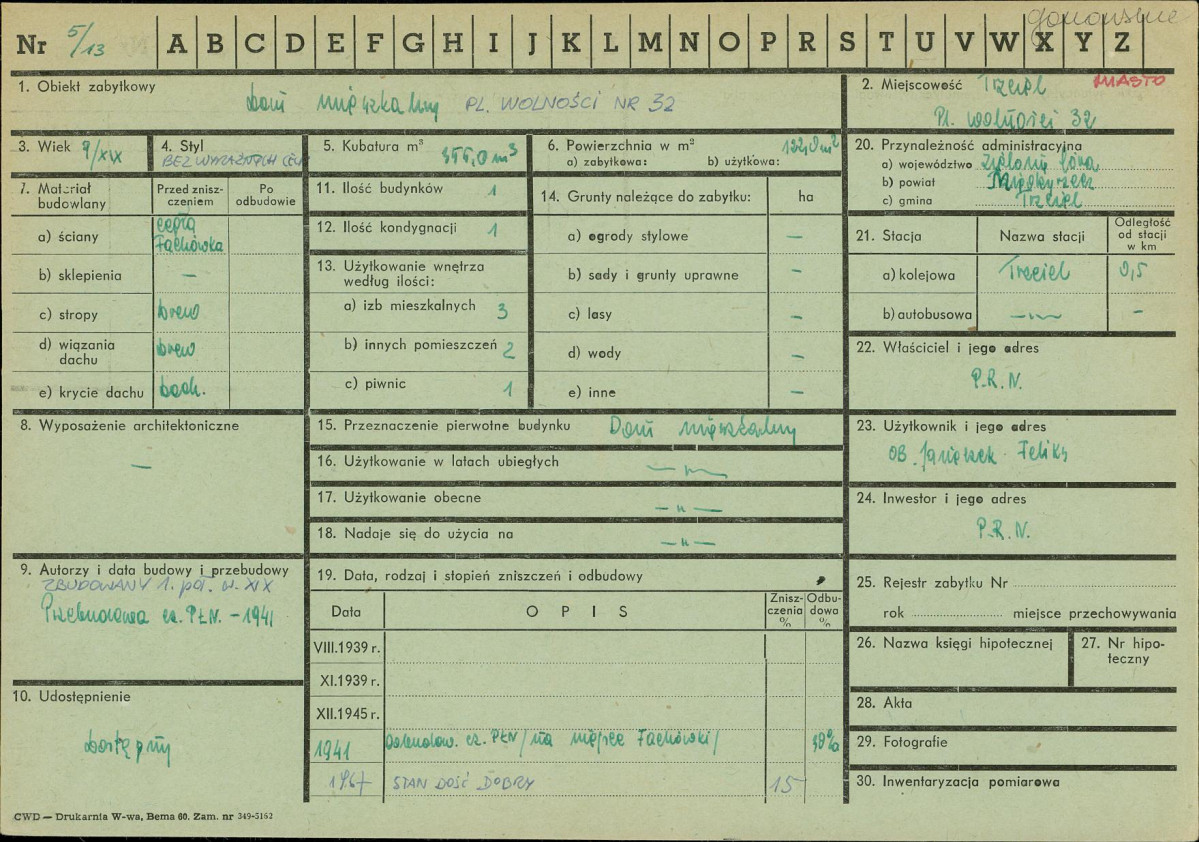 Nr 5/13 A B C D E F G H I J K L M N O P R S T U V W X Y Z
1. Obiekt zabytkowy
Dom mieszkalny PL. WOLNOŚCI NR 32
2. Miejscowość Trzciel MIASTO
Pl. Wolności 32
3. Wiek /XIX
4. Styl
BEZ WYRAŹNYCH CECH
5. Kubatura m³
6. Powierzchnia w m²
a) zabytkowa: b) użytkowa:
20. Przynależność administracyjna
a) województwo Zielona Góra
b) powiat Międzyrzecz
c) gmina Trzciel
7. Materiał budowlany
Przed zniszczeniem
Po odbudowie
a) ściany cegła
Fachówka
b) sklepienia —
c) stropy drew
d) wiązania dachu drew
e) krycie dachu dach.
11. Ilość budynków 1
12. Ilość kondygnacji 1
13. Użytkowanie wnętrza
według ilości:
a) izb mieszkalnych 3
b) innych pomieszczeń 2
c) piwnic 1
14. Grunty należące do zabytku: ha
a) ogrody stylowe —
b) sady i grunty uprawne —
c) lasy —
d) wody —
e) inne —
21. Stacja
Nazwa stacji
Odległość
od stacji
w km
a) kolejowa Trzciel 0,5
b) autobusowa —„— —
22. Właściciel i jego adres
P.R.N.
8. Wyposażenie architektoniczne
—
15. Przeznaczenie pierwotne budynku Dom mieszkalny
16. Użytkowanie w latach ubiegłych —„—
17. Użytkowanie obecne —„—
18. Nadaje się do użycia na —„—
23. Użytkownik i jego adres
OB. Feliks
24. Inwestor i jego adres
P.R.N.
9. Autorzy i data budowy i przebudowy
ZBUDOWANY 1. poł. w. XIX
Przebudowa cz. PŁN. – 1941
10. Udostępnienie
Dostępny
19. Data, rodzaj i stopień zniszczeń i odbudowy
Data
OPIS
Zniszczenia %
Odbudowa %
VIII.1939 r.
XI.1939 r.
XII.1945 r.
1941 cz. PŁN /na miejsce Fachówki/
1967 STAN DOŚĆ DOBRY 15
25. Rejestr zabytku Nr
rok miejsce przechowywania
26. Nazwa księgi hipotecznej
27. Nr hipoteczny
28. Akta
29. Fotografie
30. Inwentaryzacja pomiarowa
CWD — Drukarnia W-wa, Bema 60. Zam. nr 349-5162